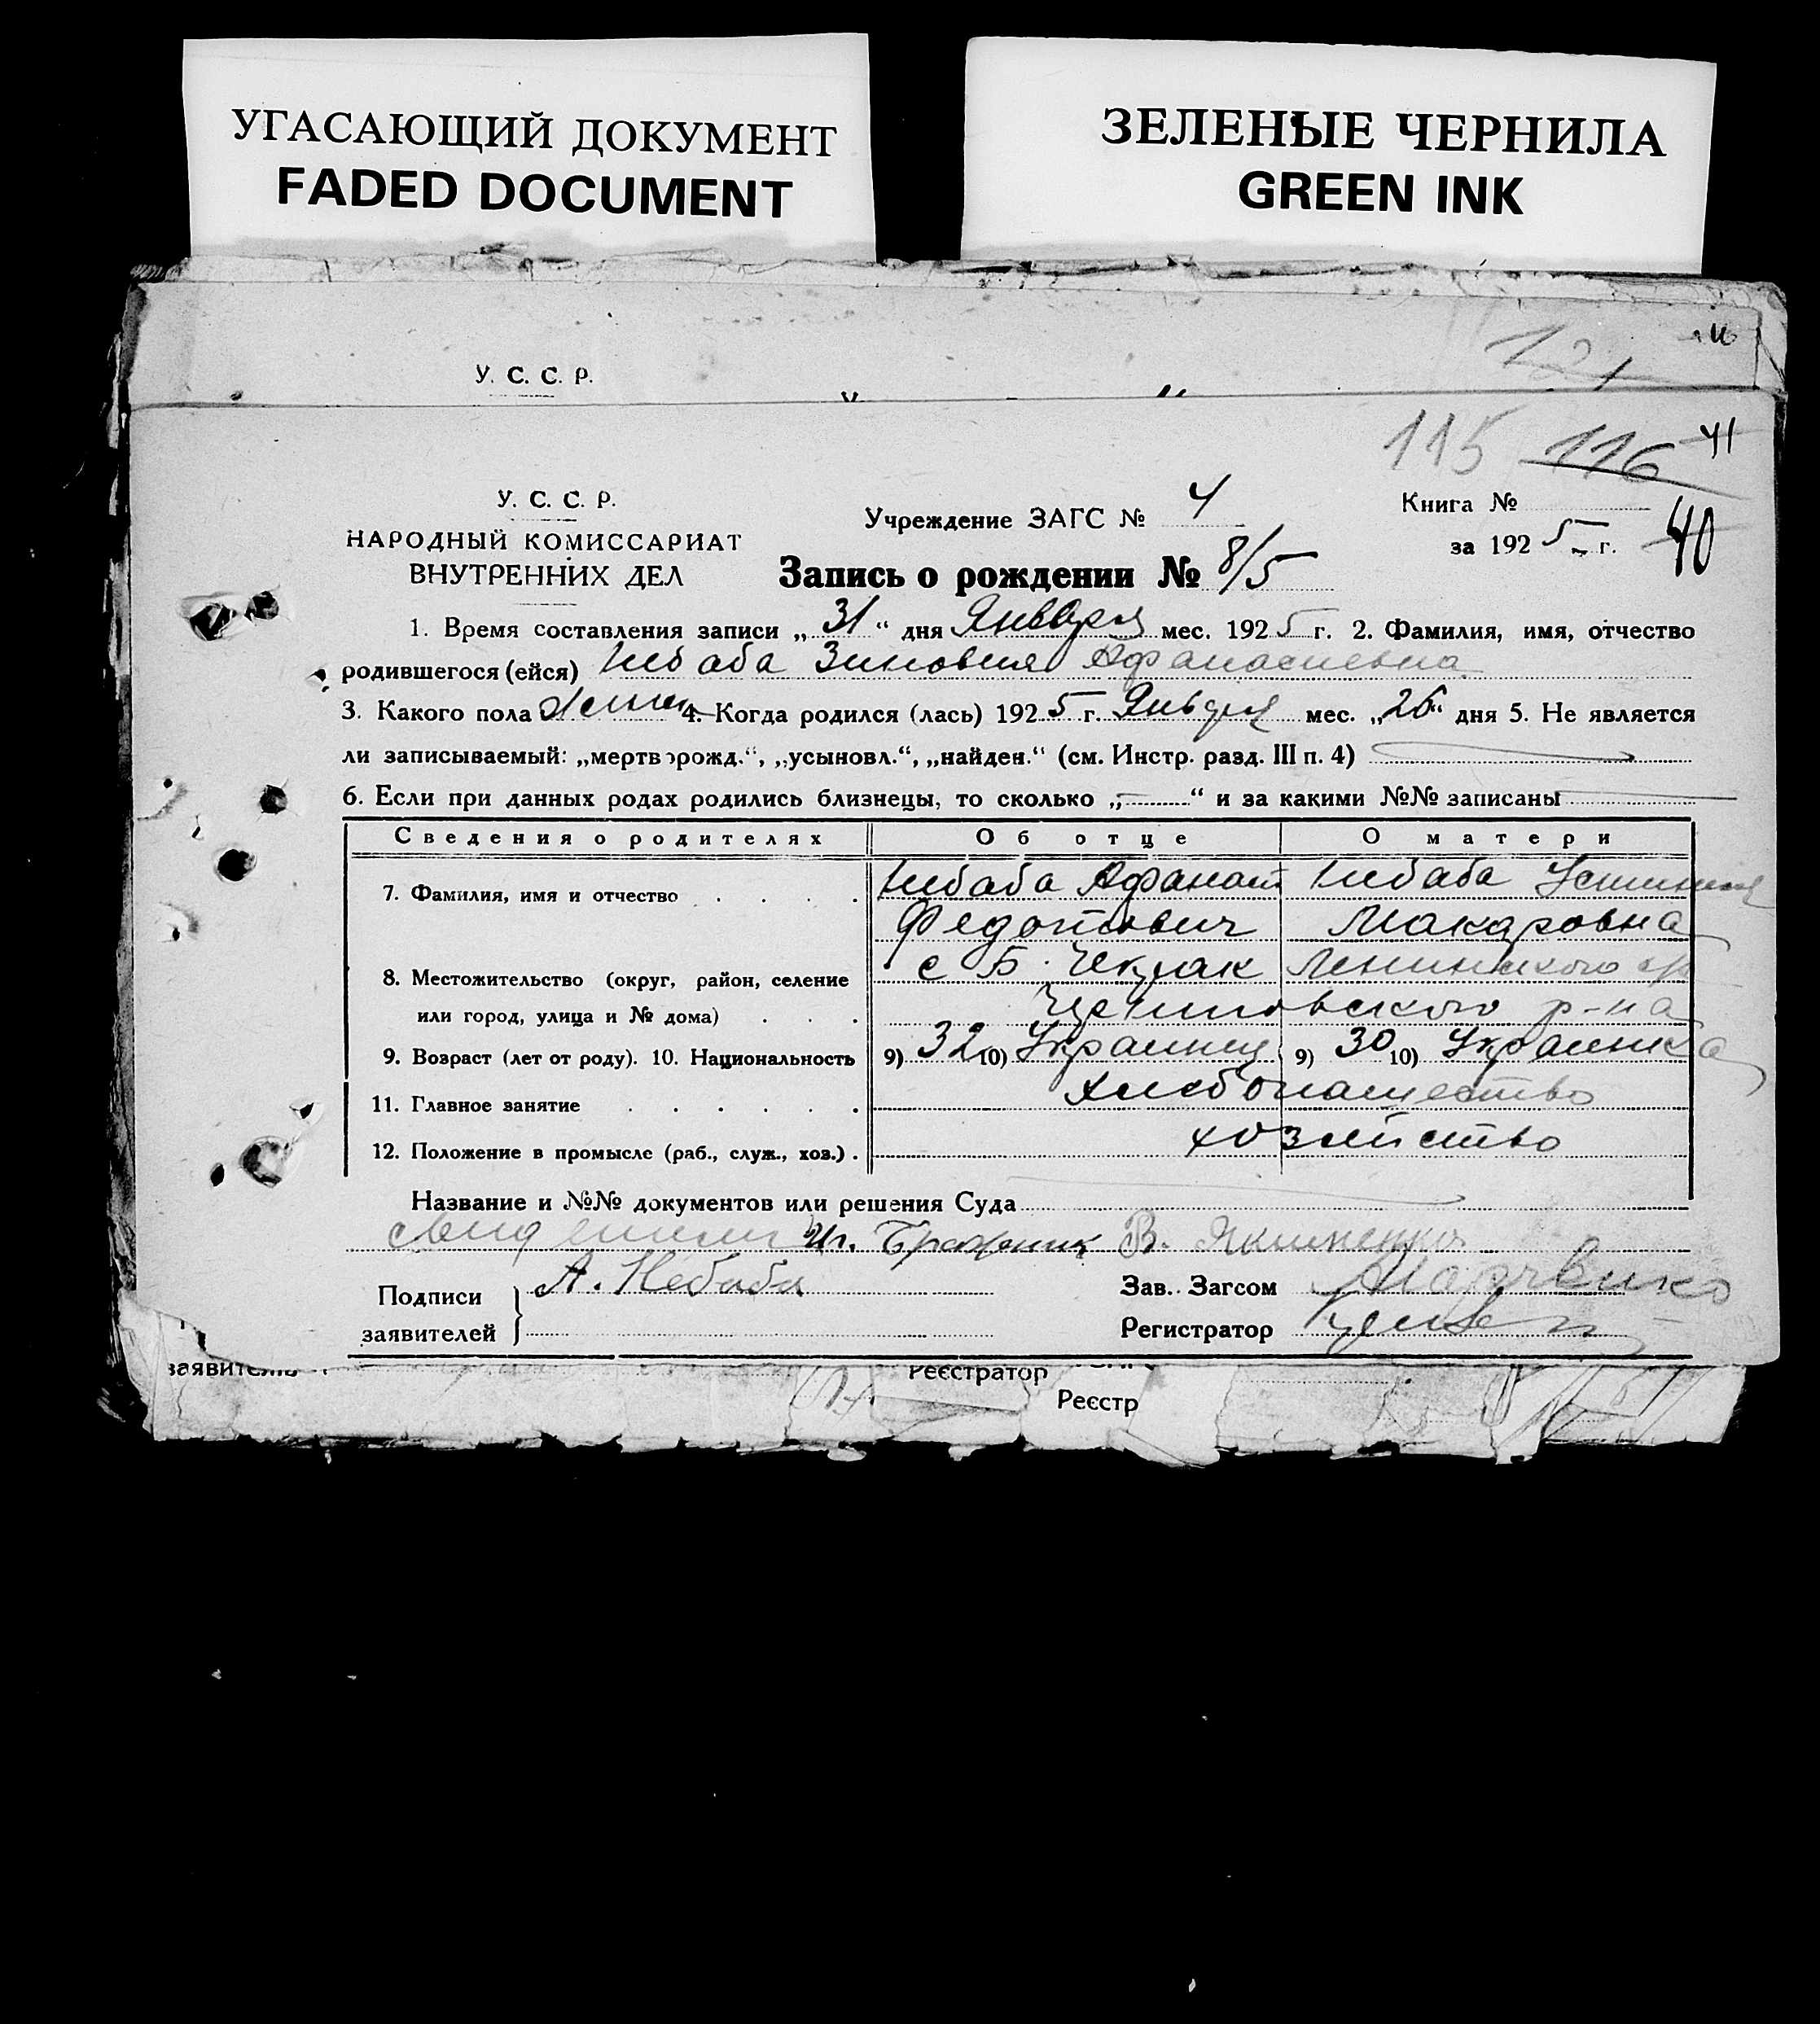 УГАСАЮЩИЙ ДОКУМЕНТ
FADED DOCUMENT
ЗЕЛЕНЫЕ ЧЕРНИЛА
GREEN INK
У. С. С. Р.
121
115 116 41
У. С. С. Р.
НАРОДНЫЙ КОМИССАРИАТ
ВНУТРЕННИХ ДЕЛ
Учреждение ЗАГС № 4
Книга №
за 1925 г. 40
Запись о рождении № 8/5
1. Время составления записи „31“ дня Января мес. 1925 г. 2. Фамилия, имя, отчество
родившегося (ейся) Небаба Зиновия Афанасиевна
3. Какого пола женск 4. Когда родился (лась) 1925 г. Января мес. „26“ дня 5. Не является
ли записываемый: „мертворожд.“, „усыновл.“, „найден.“ (см. Инстр. разд. III п. 4)
6. Если при данных родах родились близнецы, то сколько „—“ и за какими №№ записаны
Сведения о родителях Об отце О матери
7. Фамилия, имя и отчество Небаба Афанасий Небаба Устиния
Федотович Макаровна
8. Местожительство (округ, район, селение с Б. Чекрак Ленинского
или город, улица и № дома) р-на
9. Возраст (лет от роду). 10. Национальность 9) 32 10) Украинец 9) 30 10) Украинка
11. Главное занятие Хлебопашество
12. Положение в промысле (раб., служ., хоз.) хозяйство
Название и №№ документов или решения Суда
свидетели Иг. Бражник В. Якименко
Подписи А. Небаба Зав. Загсом Марченко
заявителей Регистратор
заявитель Реєстратор
Реєстр